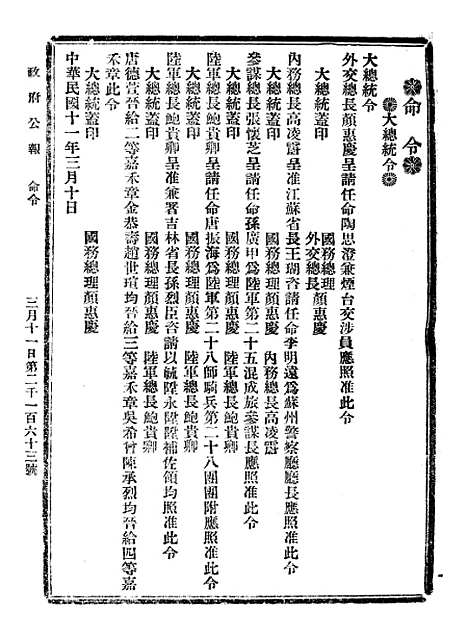 命令
大總統令
大總統令
外交總長顏惠慶呈請任命陶思澄兼煙台交涉員應照准此令
大總統蓋印
國務總理
外交總長顏惠慶
內務總長高凌霨呈准江蘇省長王瑚咨請任命李明遠爲蘇州警察廳廳長應照准此令
大總統蓋印 國務總理顏惠慶 內務總長高凌霨
參謀總長張懷芝呈請任命孫廣甲爲陸軍第二十五混成旅參謀長應照准此令
大總統蓋印 國務總理顏惠慶 陸軍總長鮑貴卿
陸軍總長鮑貴卿呈請任命唐振海爲陸軍第二十八師騎兵第二十八團團附應照准此令
大總統蓋印 國務總理顏惠慶 陸軍總長鮑貴卿
陸軍總長鮑貴卿呈准兼署吉林省長孫烈臣咨請以毓陞永陞陞補佐領均照准此令
大總統蓋印 國務總理顏惠慶 陸軍總長鮑貴卿
唐德萱晉給二等嘉禾章金恭壽趙世瑄均晉給三等嘉禾章吳希曾陳承烈均晉給四等嘉
禾章此令
大總統蓋印 國務總理顏惠慶
中華民國十一年三月十日
政府公報 命令 三月十一日第二千一百六十三號